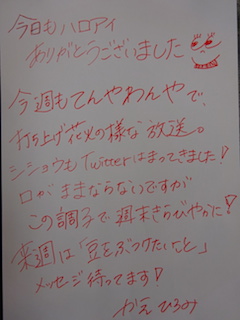 今日もハロアイ
ありがとうございました
今週もてんやわんやで、
打ち上げ花火の様な放送。
シショウもTwitterはまってきました!
口がままならないですが
この調子で週末きらびやかに!
来週は「豆をぶつけたいこと」
メッセージ待ってます!
かえ ひろみ